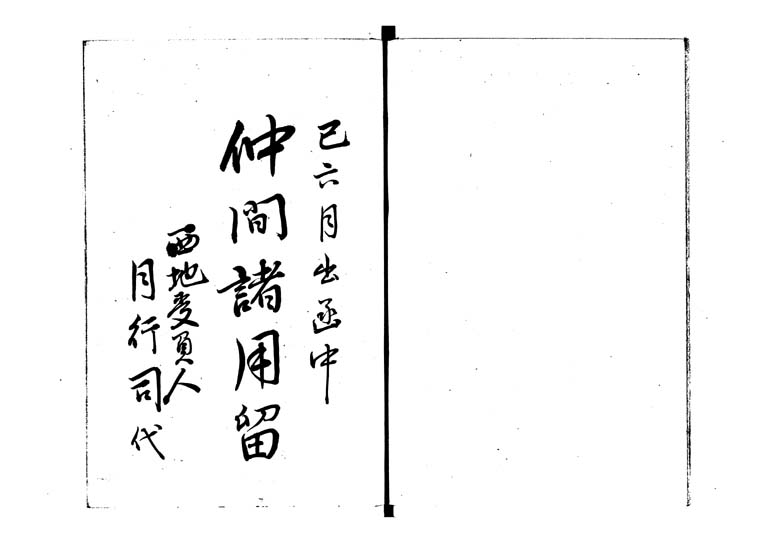 巳六月出函中
仲間諸用留
西地受負人
月行司代